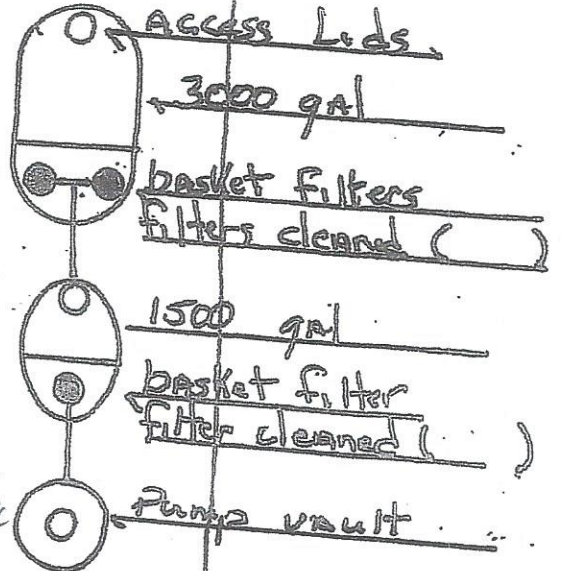 Access Lids
3000 gal
basket filters
filters cleaned (      )
1500 gal
basket filter
filter cleaned (      )
Pump vault